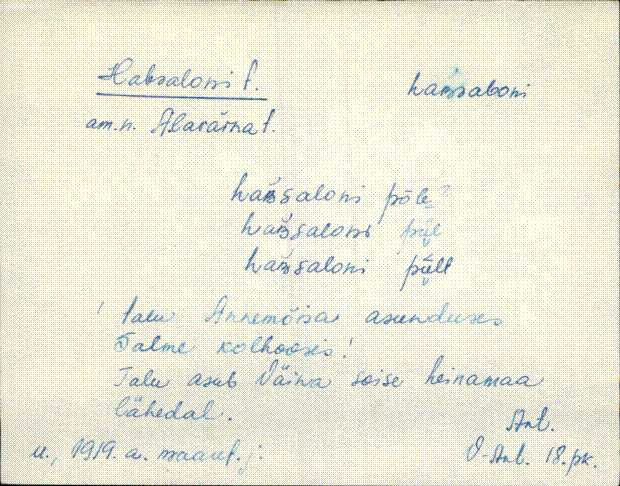 Habsaloni t. habsaboni
am.n. Alaväina t.
habsaloni põle
habsaloni pääl
habsaloni päält
! talu Annemõisa asunduses
Salme kolhoosis!
Talu asub Väina soise heinamaa
lähedal.
Ant.
u., 1919. a. maaref. j. V-Ant. 18. pk.